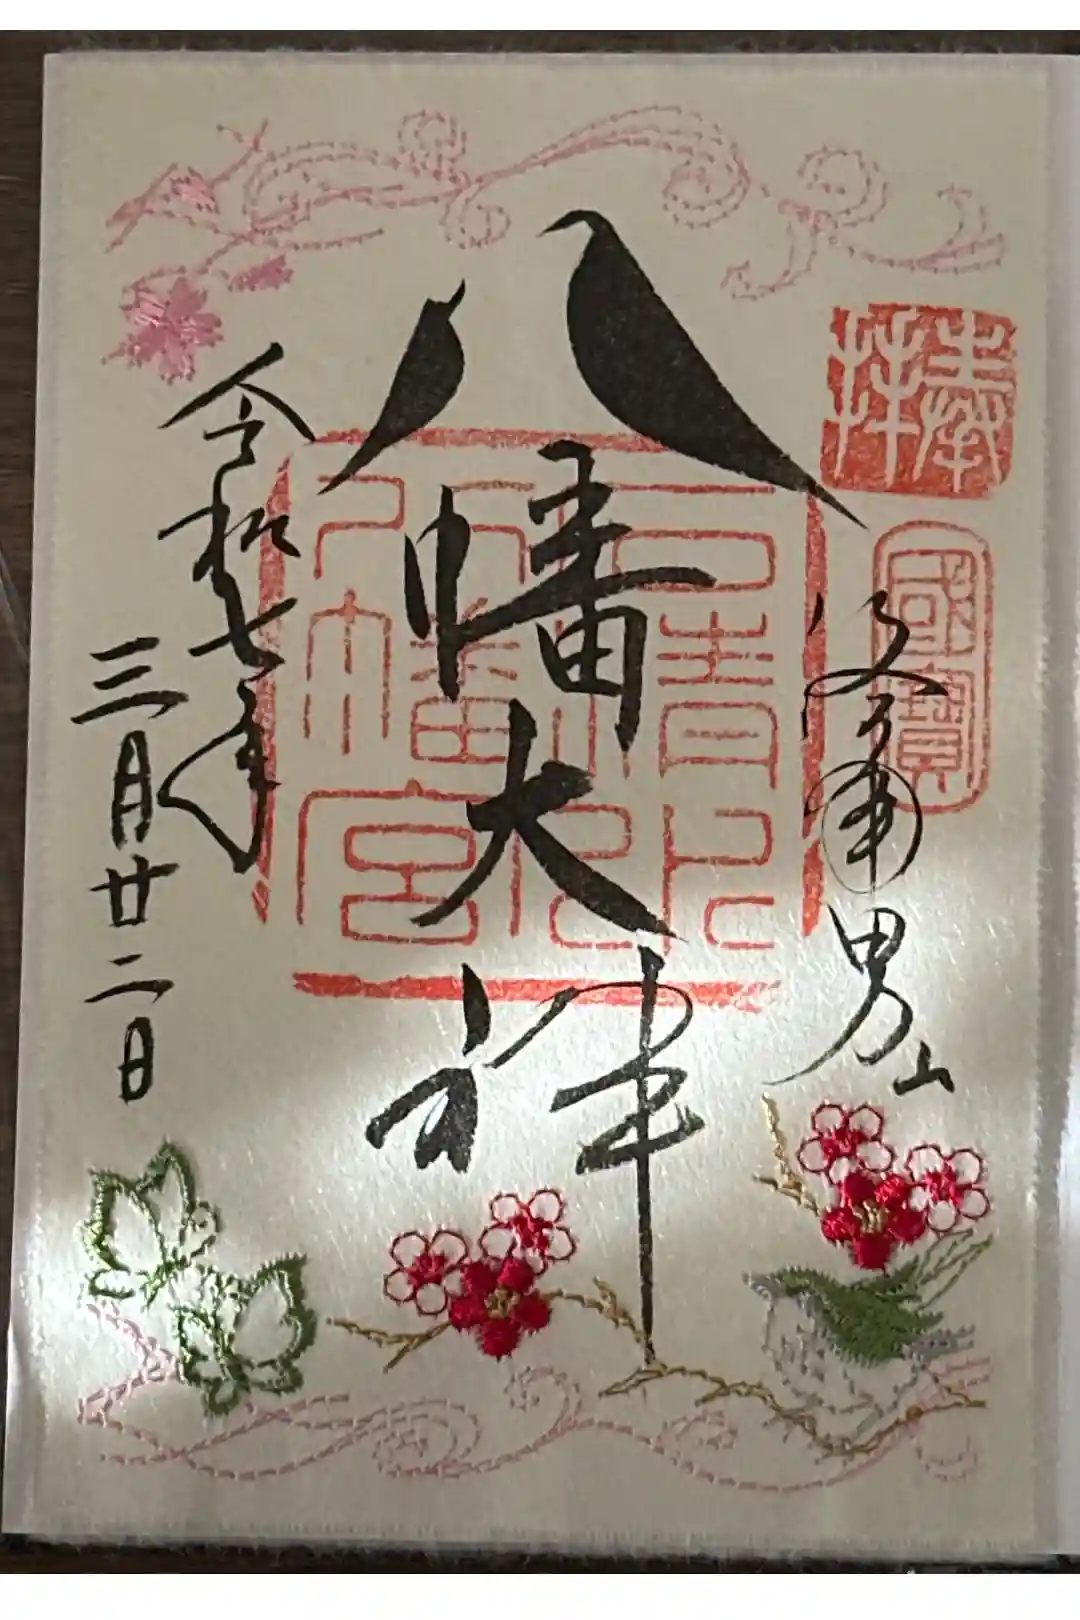 奉拝
國寶
男山
八幡大神
石清水八幡宮
令和七年
三月廿二日